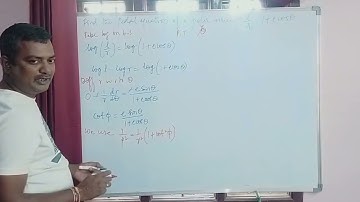 Find the Pedal equation of a
Take log on b.s
log(l/r) = log(1+e cosθ)
log l - log r = log(1+e cosθ)
Diff w.r. to θ
0 - 1/r dr/dθ = -e sinθ/1+e cosθ
cot φ = e sinθ/1+e cosθ
We use 1/p² = 1/r²(1+cot²φ)